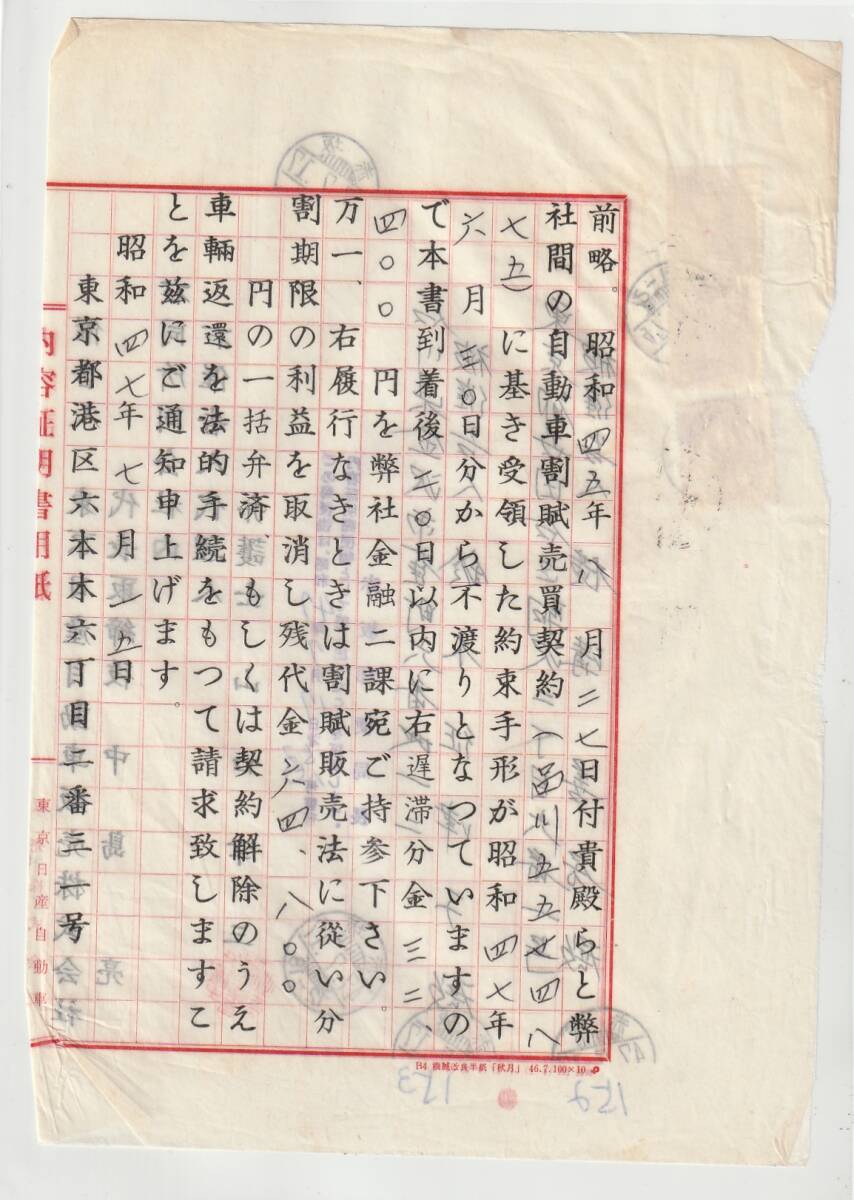 前略。昭和四五年八月二七日付貴殿らと弊
社間の自動車割賦売買契約（品川五五
七五）に基き受領した約束手形が昭和四七年
六月三〇日分から不渡りとなつていますの
で本書到着後二〇日以内に右遅滞分金三二、
四〇〇円を弊社金融二課宛ご持参下さい。
万一、右履行なきときは割賦販売法に従い分
割期限の利益を取消し残代金六四、八〇〇
円の一括弁済、もしくは契約解除のうえ
車輛返還を法的手続をもつて請求致しますこ
とを茲にご通知申上げます。
昭和四七年七月一五日
東京都港区六本木六丁目二番三一号
内容証明書用紙
東京日産自動車
B4 46.7.100×10
173
129